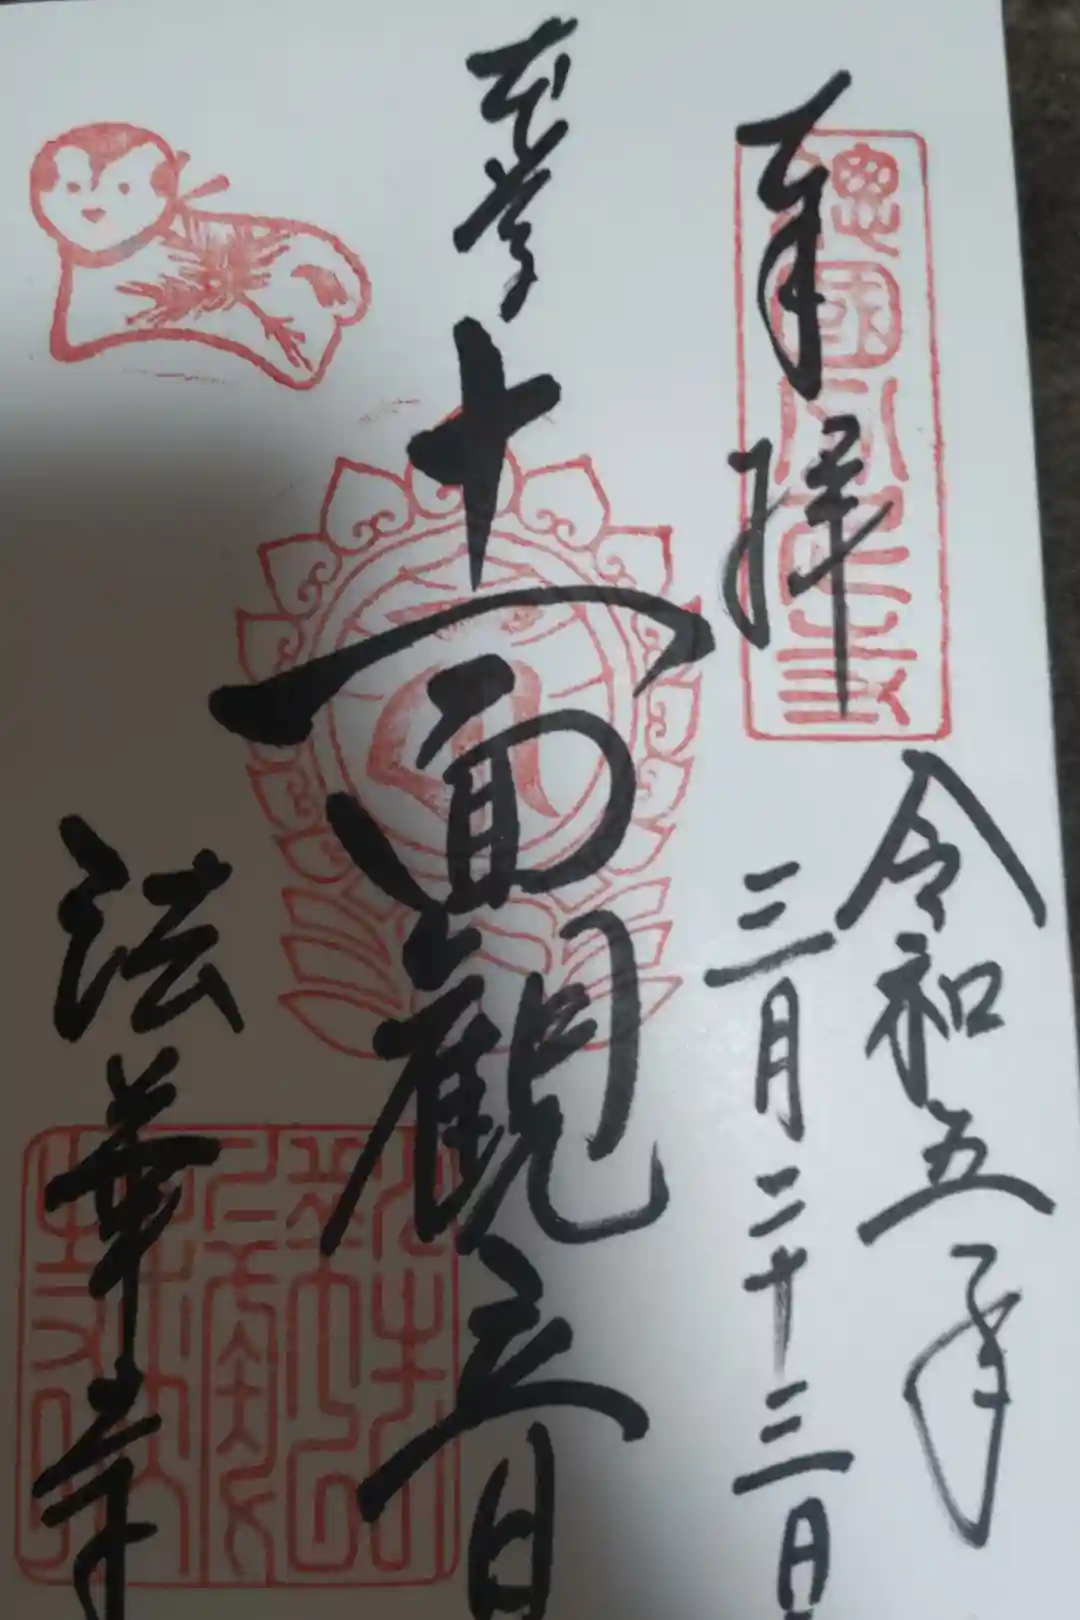 奉拝
總國分尼寺
令和五年
三月二十三日
本尊
十一面観音
法華寺